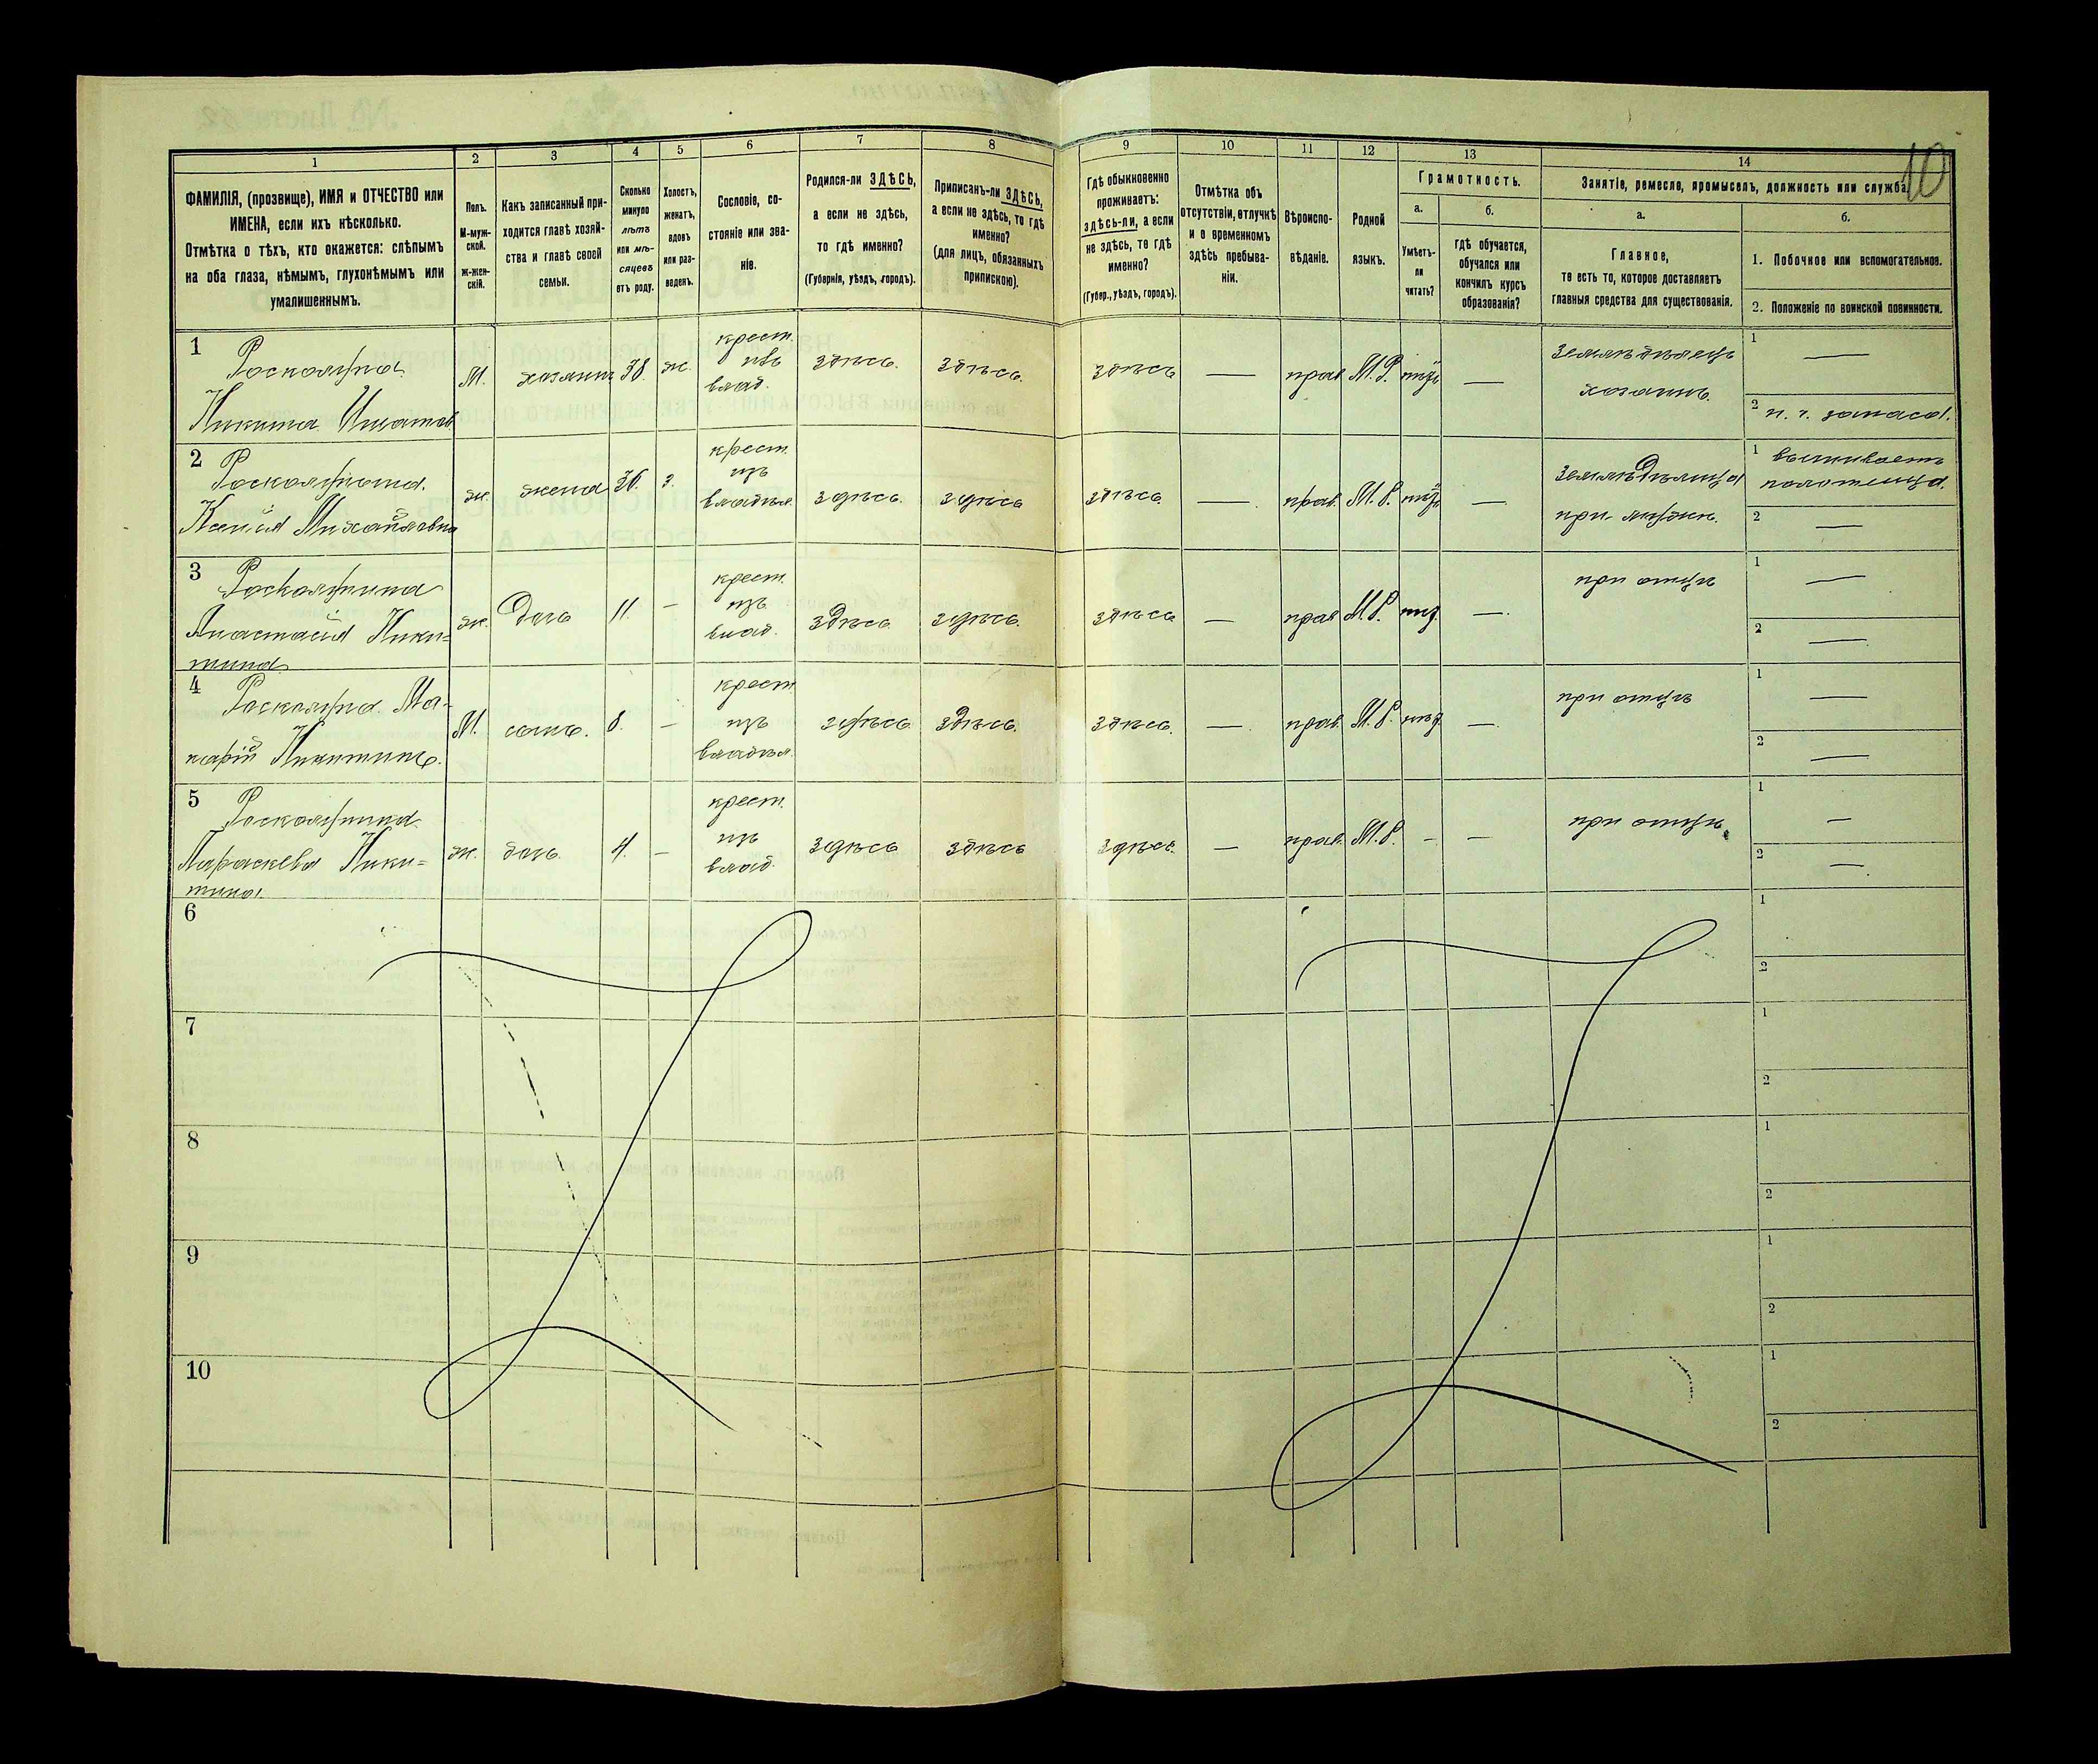 10
1
2
3
4
5
6
7
8
9
10
11
12
13
14
ФАМИЛІЯ, (прозвище), ИМЯ и ОТЧЕСТВО или
ИМЕНА, если ихъ нѣсколько.
Отмѣтка о тѣхъ, кто окажется: слѣпымъ
на оба глаза, нѣмымъ, глухонѣмымъ или
умалишеннымъ.
Полъ.
М-муж-
ской.
Ж-жен-
скій.
Какъ записанный при-
ходится главѣ хозяй-
ства и главѣ своей
семьи.
Сколько
минуло
лѣтъ
или мѣ-
сяцевъ
отъ роду.
Холостъ,
женатъ,
вдовъ
или раз-
веденъ.
Сословіе, со-
стояніе или зва-
ніе.
Родился-ли ЗДѢСЬ,
а если не здѣсь,
то гдѣ именно?
(Губернія, уѣздъ, городъ).
Приписанъ-ли ЗДѢСЬ,
а если не здѣсь, то гдѣ
именно?
(для лицъ, обязанныхъ
припискою).
Гдѣ обыкновенно
проживаетъ:
здѣсь-ли, а если
не здѣсь, то гдѣ
именно?
(Губер., уѣздъ, городъ).
Отмѣтка объ
отсутствіи, отлучкѣ
и о временномъ
здѣсь пребыва-
ніи.
Вѣроиспо-
вѣданіе.
Родной
языкъ.
Грамотность.
а.
Умѣетъ-
ли
читать?
б.
гдѣ обучается,
обучался или
кончилъ курсъ
образованія?
Занятіе, ремесло, промыселъ, должность или служба.
а.
Главное,
то есть то, которое доставляетъ
главныя средства для существованія.
б.
1. Побочное или вспомогательное.
2. Положеніе по воинской повинности.
1
Никита
М. хозяинъ 38. ж.
крест.
изъ
влад.
здѣсь. здѣсь. здѣсь — прав. М.Р. —
земледѣлецъ
хозяинъ.
1 —
2 запаса.
2
Михайловна
ж. жена 36. з.
крест.
изъ
владѣл.
здѣсь. здѣсь здѣсь. — прав. М.Р. —
при мужѣ.
1
2 —
3
Анастасія Ники-
тина
ж. дочь 11. —
крест.
изъ
влад.
здѣсь здѣсь. здѣсь — прав. М.Р. —
при отцѣ
1 —
2 —
4
Ма-
карій Никитинъ.
М. сынъ. 8. —
крест.
изъ
владѣл.
здѣсь здѣсь. здѣсь. — прав. М.Р. —
при отцѣ
1 —
2 —
5
Параскева Ники-
тина.
ж. дочь. 4. —
крест.
изъ
влад.
здѣсь здѣсь здѣсь. — прав. М.Р. - —
при отцѣ.
1 —
2 —
6
1
2
7
1
2
8
1
2
9
1
2
10
1
2